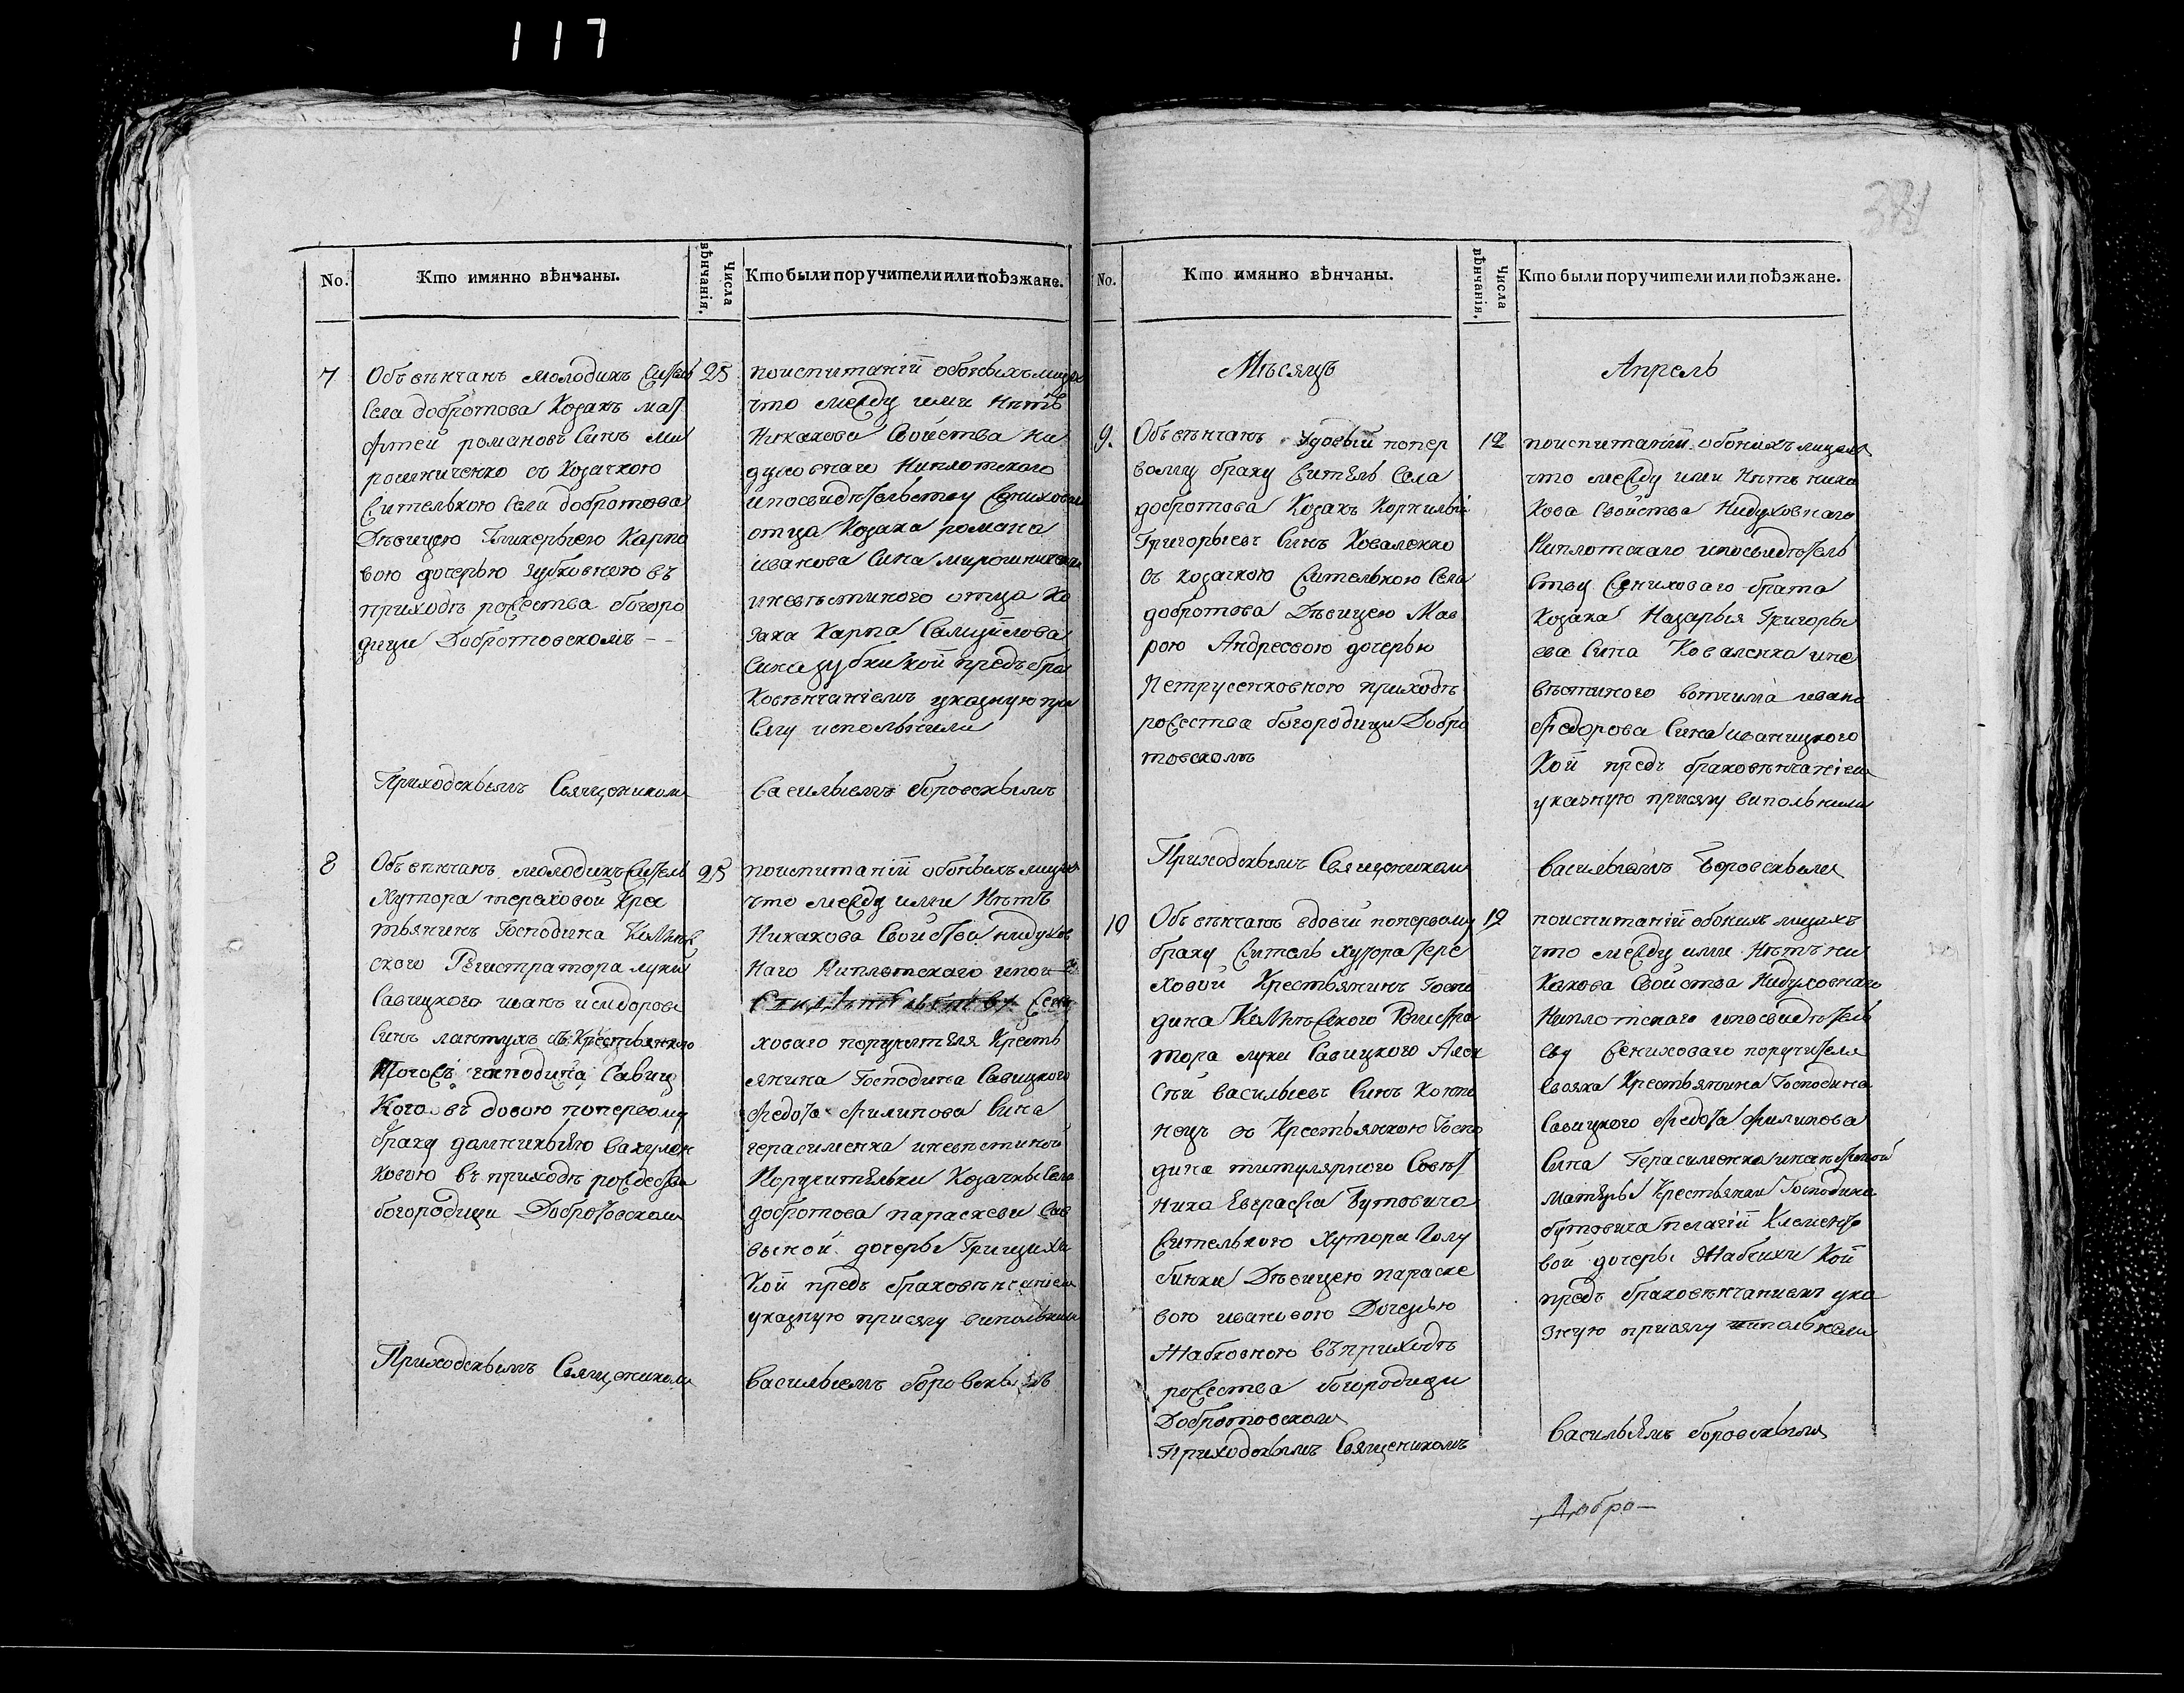 117
381
No.
Кто имянно вѣнчаны.
Числа вѣнчанія.
Кто были поручители или поѣзжане.
7
Объвѣнчанъ молодикъ житель
села добротова Козакъ мат
фѣей романовъ Синъ ми
рошниченко съ Козачкою
жителькою села добротова
Дѣвицею Гликерьею Карпо
вою дочерью зубковною въ
приходѣ рожества богоро
дици Добротовскомъ
25
поиспитаній обоихъ лицъ
что между ими нѣтъ
Никакова Свойства ни
духовнаго Ниплотского
ипосвидѣтельству жениховаго
отца Козака романа
иванова Сина мирошниченка
иневѣстиного отца Ко
зака Карпа Самуйлова
Сина зубки кой предъ бра
ковѣнчаніемъ указную при
сягу исполнили
Приходскымъ Священикомъ
Васильемъ боровскымъ
8
Объвѣнчанъ молодикъ житель
Хутора тереховой Крес
тьянинъ Господина Колѣж
ского Регистратора луки
Савицкого иванъ исидоровъ
Синъ лантухъ съ Крестьянкою
Тогожъ господина Савиц
Кого въдовою попервому
браку домникиею вакулен
ковою въ приходѣ рождества
богородици Добротовскомъ
25
поиспитаній обоихъ лицъ
что между ими Нѣтъ
Никакова Свойства нидухов
наго Ниплотскаго ипос
жени
ховаго поручителя Кресть
янина Господина Савицкого
Федота Филипова Сина
герасименка иневѣстиной
Поручительки Козачкы Села
добротова параскеви Сав
выной дочеры Грицихи
Кой предъ браковѣнчаніемъ
указную присягу виполнили
Приходскымъ Священикомъ
Васильемъ боровскымъ
No.
Кто имянно вѣнчаны.
Числа вѣнчанія.
Кто были поручители или поѣзжане.
Мѣсяцъ
Апрель
9.
Объвѣнчанъ удовый попер
вому браку житель Села
добротова Козакъ Корнилый
Григорьевъ Синъ Коваленко
съ козачкою жителькою Села
добротова Дѣвицею Мав
рою Андреевою дочерью
Петрусенковною приходѣ
рожества богородици Добро
товскомъ
12
поиспитаній обоихъ лицахъ
что между ими Нѣтъ ника
кова Свойства Нидуховнаго
Ниплотскаго ипосвидѣтель
ству жениховаго брата
Козака Назарья Григорье
ева Сина Коваленка ине
вѣстиного вотчима ивана
Федорова Сина иваницкого
Кой предъ браковѣнчаніемъ
указную присягу виполнили
Приходскымъ Священикомъ
Васильемъ Боровскымъ
10
Объвѣнчанъ вдовій попервому
браку житель хутора тере
ховой Крестьянинъ Госпо
дина Колѣжского Регистра
тора луки Савицкого Алек
сѣй васильевъ Синъ
нецъ съ Крестьянкою Госпо
дина титулярного Совѣт
ника Евграфа Бутовича
жителькою Хутора Голу
бинки Дѣвицею параске
вою ивановою Дочерью
Жабковною въ приходѣ
рожества богородици
Добротовскомъ
Приходскымъ Священикомъ
12
поиспитаній обоихъ лицахъ
что между ими Нѣтъ ни
Какова Свойства Нидуховнаго
Ниплотскаго ипосвидѣтель
сву жениховаго поручителя
Свояка Крестьянина Господина
Савицкого Федота Филипова
Сина Герасименка иневѣстиной
матеры Крестьянки Господина
бутовича пелагій Клементо
вой дочеры Жабчихи Кой
предъ браковѣнчаниемъ ука
зную присягу виполнили
Васильемъ боровскымъ
Добро—